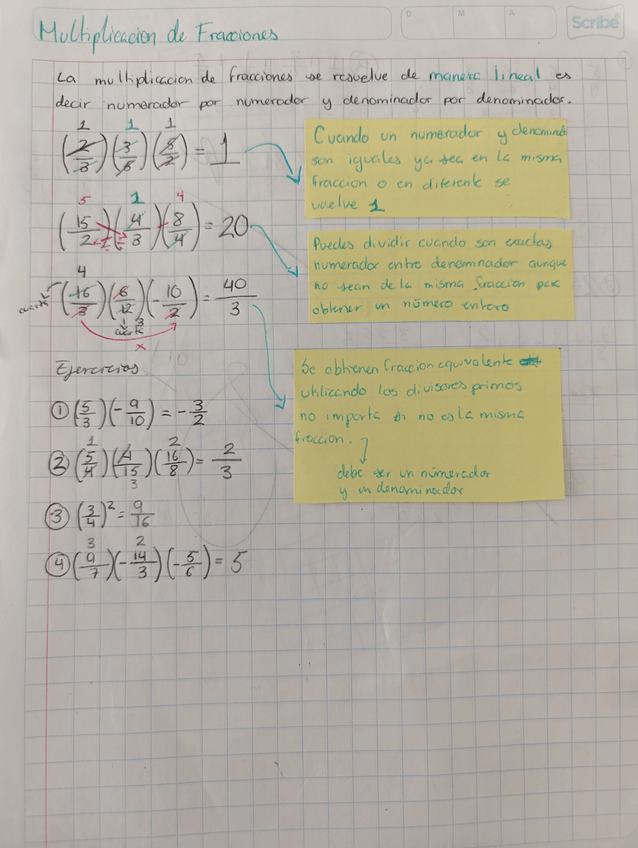 Multiplicacion de Fracciones
D M A
Scribe
La multiplicacion de fracciones se resuelve de manera lineal es
decir numerador por numerador y denominador por denominador.
1 1 1
(2/3)(3/8)(8/2) = 1
Cuando un numerador y denomina
son iguales ya sea en la misma
fraccion o en diferente se
vuelve 1
5 1 4
(15/2)(4/3)(8/4) = 20
Puedes dividir cuando son exactas
numerador entre denominador aunque
no sean de la misma fraccion para
obtener un número entero
4
(-16/3)(6/12)(-10/2) = 40/3
x
Se obtienen fraccion equivalente
utilizando los divisores primos
no importa si no es la misma
fraccion.
debe ser un númerador
y un denominador
Ejercicios
① (5/3)(-9/10) = -3/2
1 2
② (5/4)(4/15)(16/8) = 2/3
3
③ (3/4)² = 9/16
3 2
④ (9/7)(-14/3)(-5/6) = 5